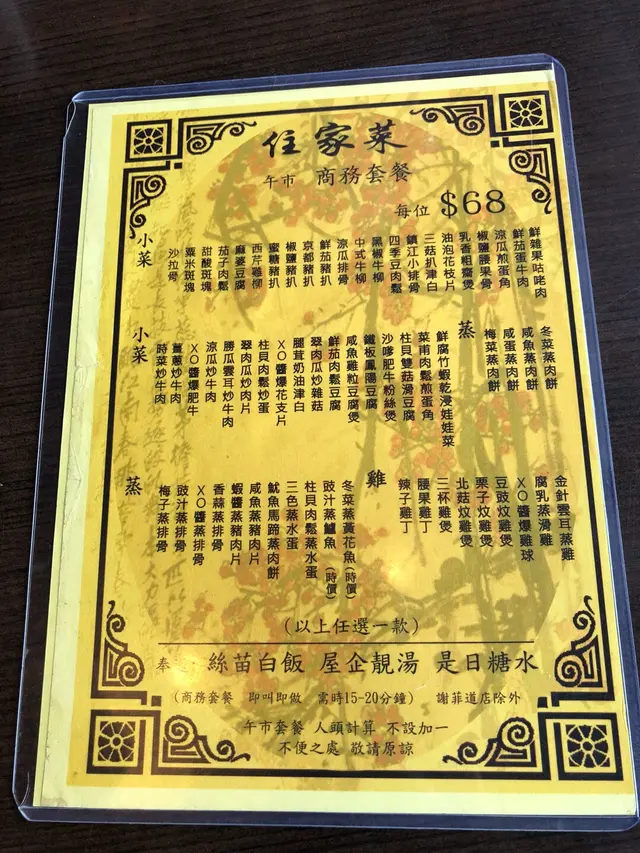 住家菜
午市 商務套餐
每位 $68
小菜
沙拉骨
粟米斑塊
甜酸斑塊
茄子肉鬆
麻婆豆腐
西芹雞柳
蜜糖豬扒
椒鹽豬扒
京都豬扒
鮮茄豬扒
涼瓜排骨
中式牛柳
黑椒牛柳
四季豆肉鬆
鎮江小排骨
三菇扒津白
油泡花枝片
乳香粗齋煲
椒鹽腰果骨
涼瓜煎蛋角
鮮茄蛋牛肉
鮮雜果咕咾肉
小菜
蒔菜炒牛肉
薑蔥炒牛肉
XO醬爆肥牛
涼瓜炒牛肉
勝瓜雲耳炒牛肉
翠肉瓜炒肉片
柱貝肉鬆炒蛋
XO醬爆花支片
腿茸奶油津白
翠肉瓜炒雜菇
鮮茄肉鬆豆腐
咸魚雞粒豆腐煲
鐵板鳳陽豆腐
沙嗲肥牛粉絲煲
柱貝雙菇滑豆腐
菜甫肉鬆煎蛋角
鮮腐竹蝦乾浸娃娃菜
蒸
梅菜蒸肉餅
咸蛋蒸肉餅
咸魚蒸肉餅
冬菜蒸肉餅
蒸
梅子蒸排骨
豉汁蒸排骨
XO醬蒸排骨
香蒜蒸排骨
蝦醬蒸豬肉片
咸魚蒸豬肉片
魷魚馬蹄蒸肉餅
三色蒸水蛋
柱貝肉鬆蒸水蛋
豉汁蒸鱸魚(時價)
冬菜蒸黃花魚(時價)
雞
辣子雞丁
腰果雞丁
三杯雞煲
北菇炆雞煲
栗子炆雞煲
豆豉炆雞煲
XO醬爆雞球
腐乳蒸滑雞
金針雲耳蒸雞
(以上任選一款)
奉 絲苗白飯 屋企靚湯 是日糖水
(商務套餐 即叫即做 需時15-20分鐘) 謝菲道店除外
午市套餐 人頭計算 不設加一
不便之處 敬請原諒